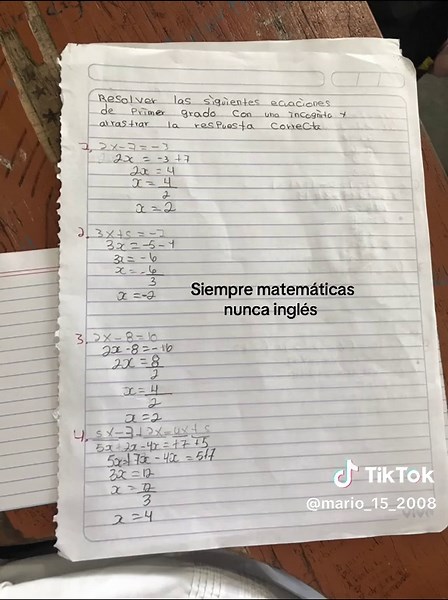 Resolver las siguientes ecuaciones
de Primer grado con una incognita y
arrastrar la respuesta correcta
1. 2x-7=-3
2x = -3+7
2x = 4
x = 4
2
x = 2
2.
3x = -5-1
3x = -6
x = -6
3
x = -2
Siempre matemáticas
nunca inglés
3. 2x-8=
2x-8=-16
2x = 8
2
x = 4
2
x = 2
4. 5x-7+2x=4x+5
5x+2x-4x=+7+5
3x = 12
x = 12
3
x = 4
TikTok
@mario_15_2008